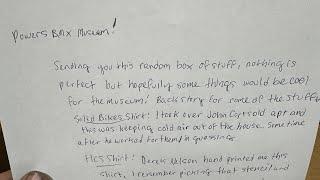 Powers BMX Museum!
Sending you this random box of stuff, nothing is
perfect but hopefully some things would be cool
for the museum! Back story for some of the stuff
Solid Bikes Shirt: I took over John Corts old apt and
this was keeping cold air out of the house. Some time
after he worked for them I'm guessing
FLCS Shirt! Derek Nelson hand printed me this
shirt, I remember picking that stencil and